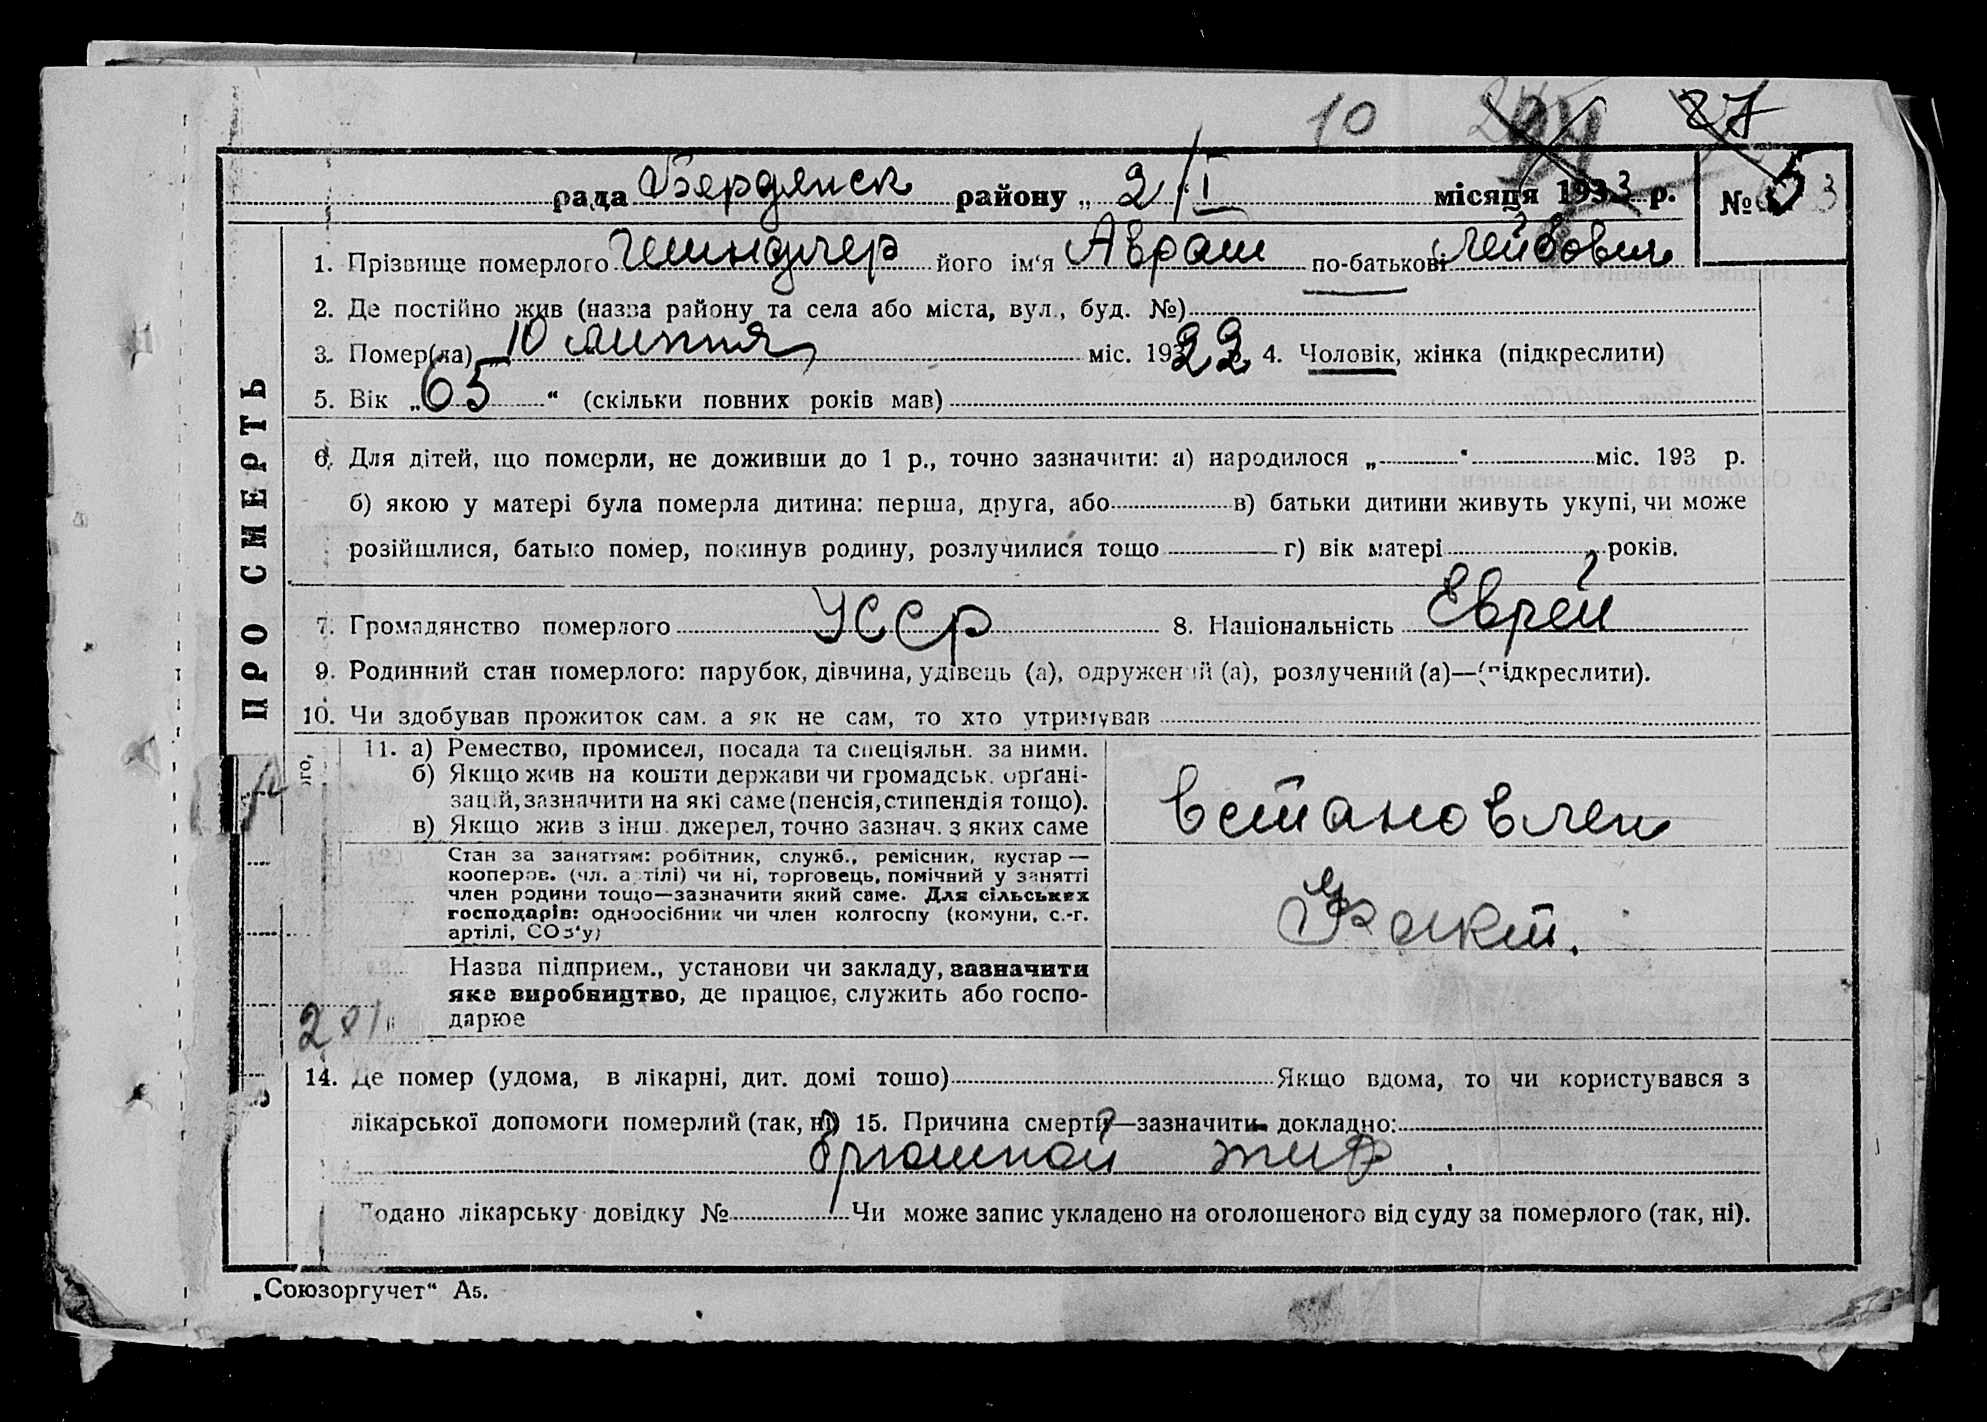 10 27
рада Бердянск району „ 2/I місяця 1933 р. № 5 3
1. Прізвище померлого Шиндлер його ім'я Абрам по-батькові Лейбович
2. Де постійно жив (назва району та села або міста, вул., буд. №)
3. Помер(ла) 10 липня міс. 1922 4. Чоловік, жінка (підкреслити)
5. Вік „65“ (скільки повних років мав)
ПРО СМЕРТЬ
6. Для дітей, що померли, не доживши до 1 р., точно зазначити: а) народилося „ “ міс. 193 р.
б) якою у матері була померла дитина: перша, друга, або в) батьки дитини живуть укупі, чи може
розійшлися, батько помер, покинув родину, розлучилися тощо г) вік матері років.
7. Громадянство померлого УССР 8. Національність Еврей
9. Родинний стан померлого: парубок, дівчина, удівець (а), одружений (а), розлучений (а)—(підкреслити).
10. Чи здобував прожиток сам. а як не сам, то хто утримував
11. а) Ремество, промисел, посада та спеціяльн. за ними.
б) Якщо жив на кошти держави чи громадськ. орґані-
зацій, зазначити на які саме (пенсія, стипендія тощо).
в) Якщо жив з інш. джерел, точно зазнач. з яких саме
встановлен
Стан за заняттям: робітник, служб., ремісник, кустар —
кооперов. (чл. артілі) чи ні, торговець, помічний у занятті
член родини тощо—зазначити який саме. Для сільських
господарів: одноосібник чи член колгоспу (комуни, с.-г.
артілі, СОЗ'у)
факт.
Назва підприєм., установи чи закладу, зазначити
яке виробництво, де працює, служить або госпо-
дарює
14. Де помер (удома, в лікарні, дит. домі тошо) Якщо вдома, то чи користувався з
лікарської допомоги померлий (так, ні) 15. Причина смерті—зазначити докладно:
брюшной тиф.
Додано лікарську довідку № Чи може запис укладено на оголошеного від суду за померлого (так, ні).
„Союзоргучет“ А5.